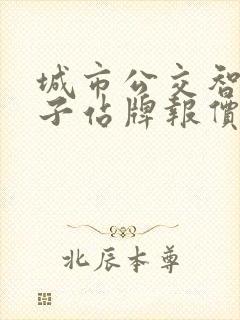 城市公交智
子佔牌報價
北辰本尊